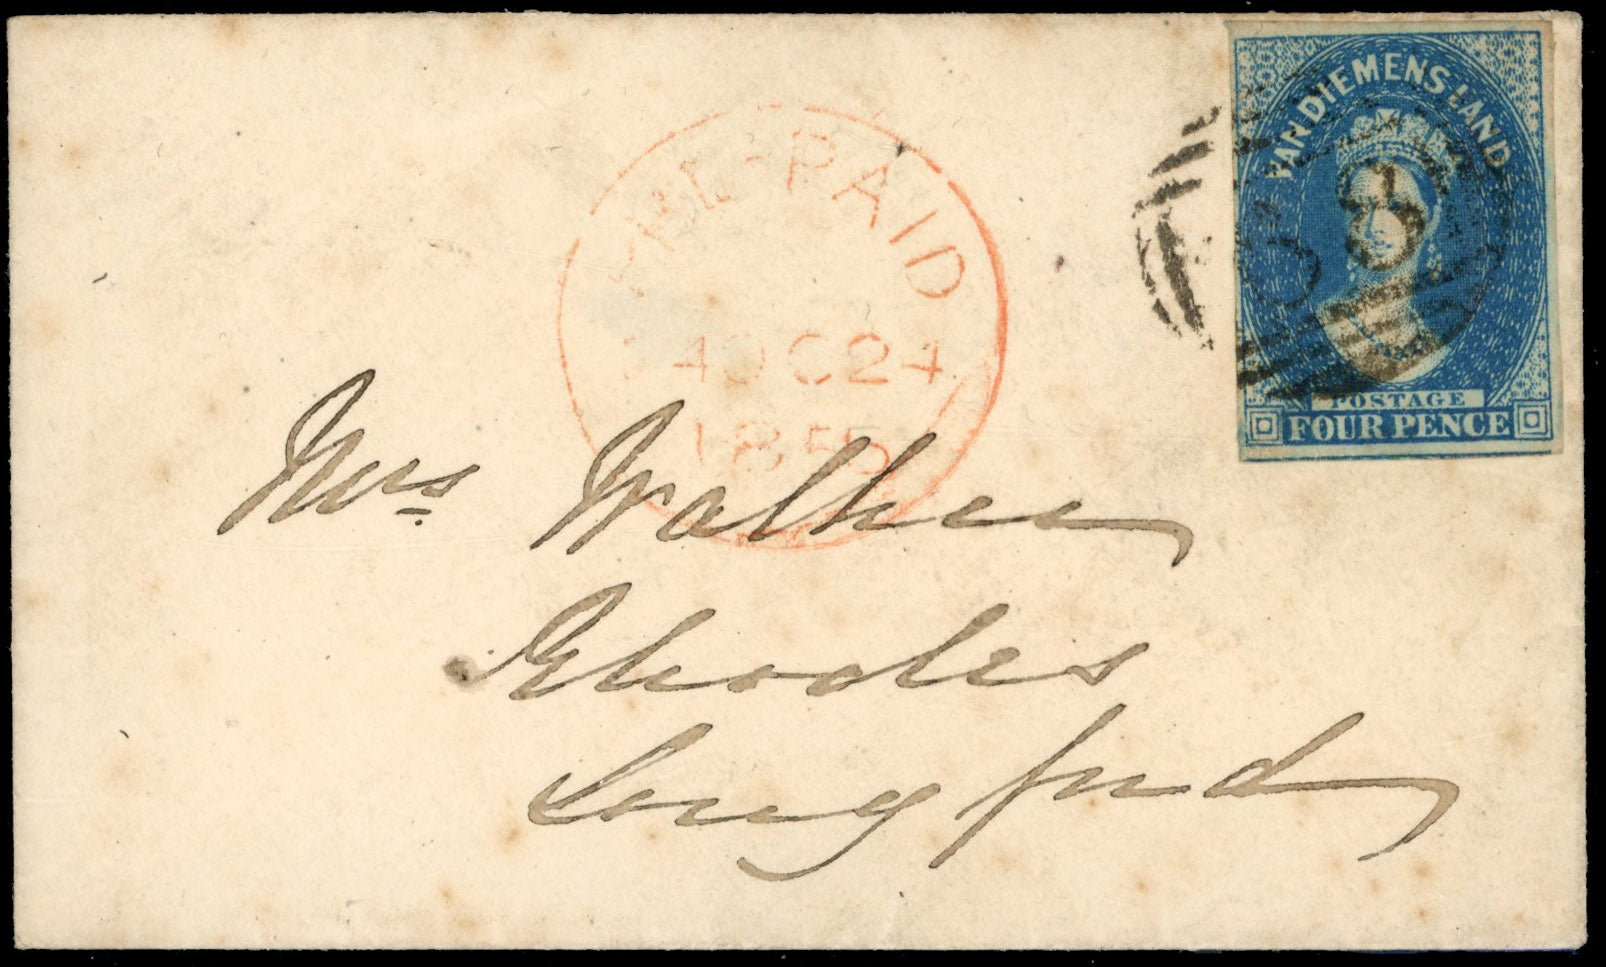 VAN DIEMENS LAND
88
POSTAGE
FOUR PENCE
PAID
4 OC 24
1855
Mrs Walker
Rhodes
Longford